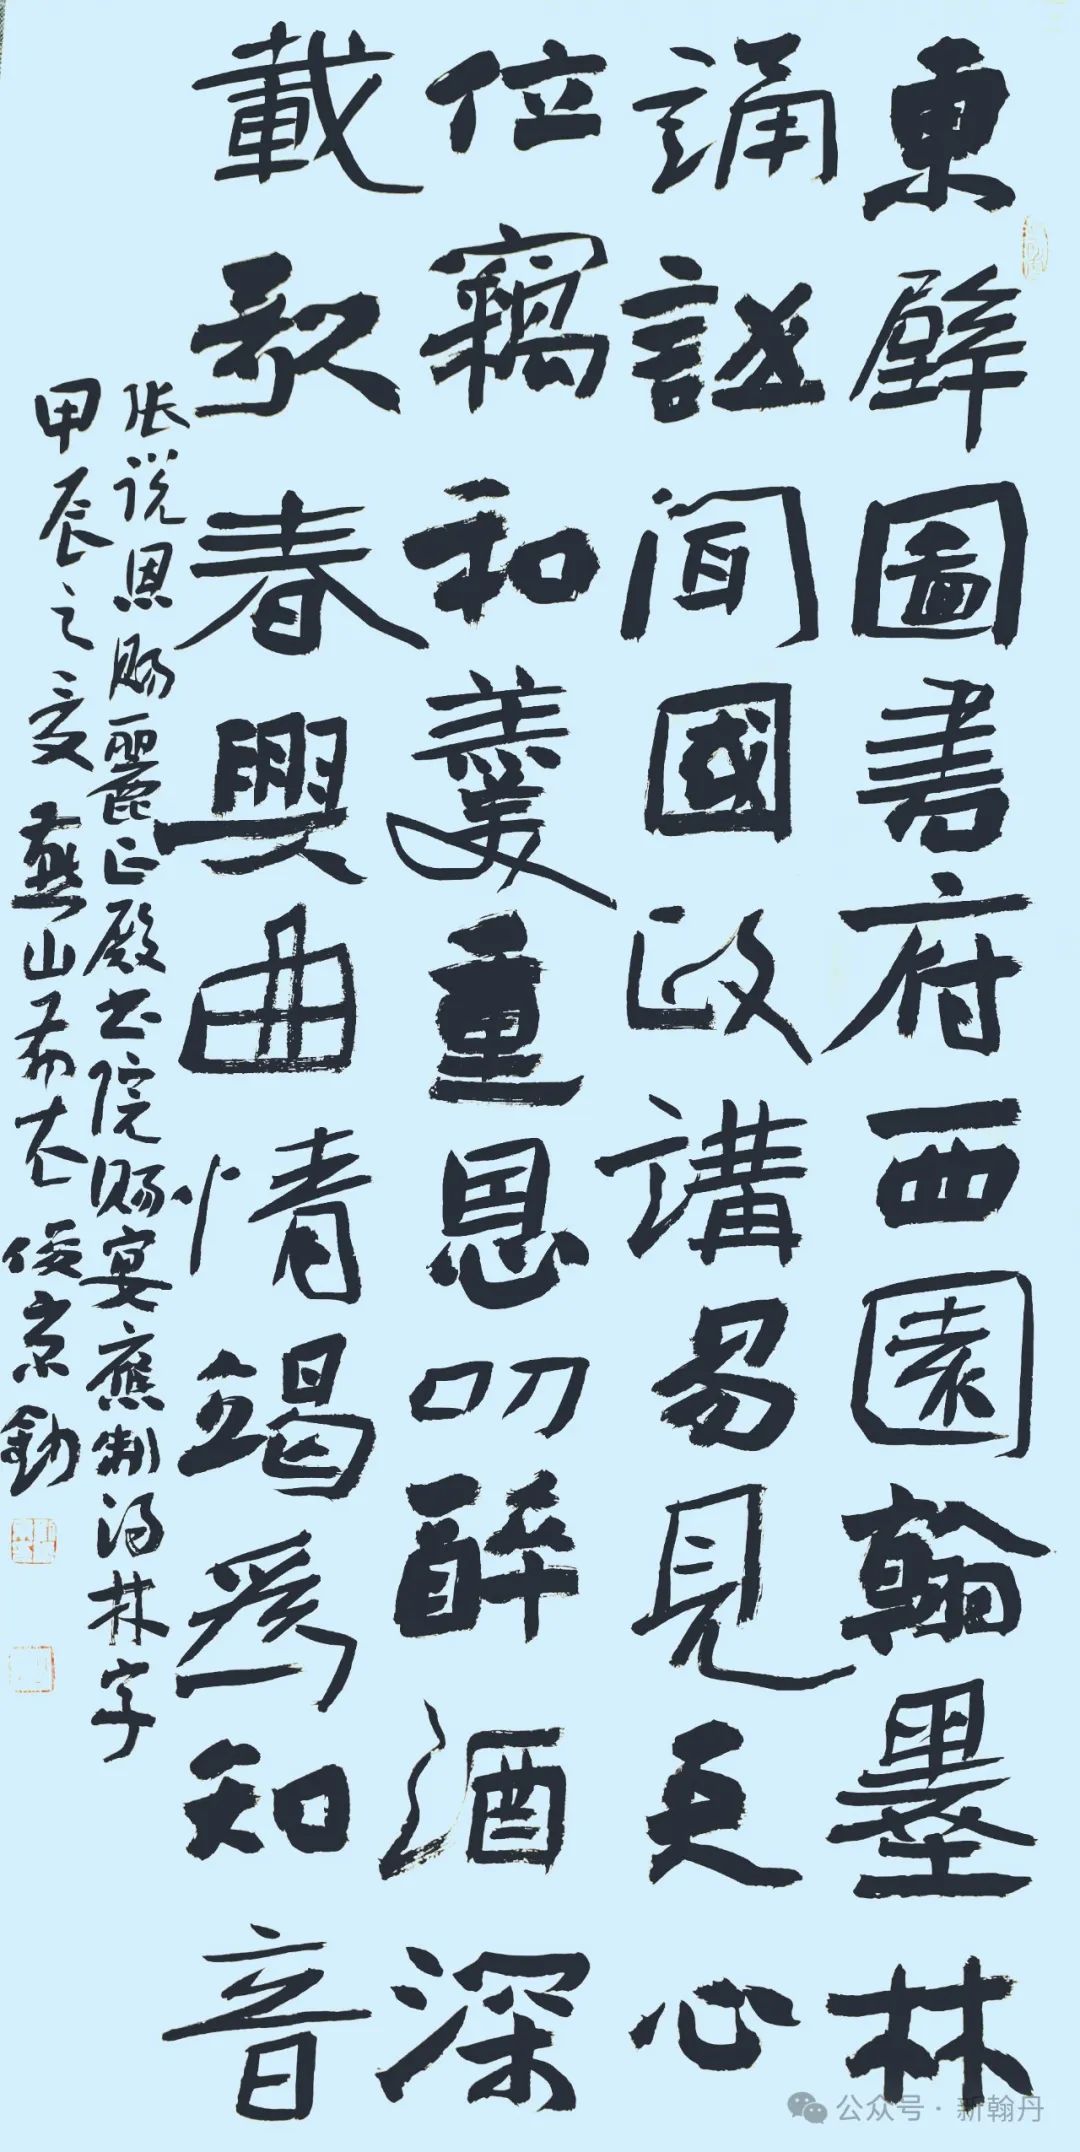 東壁圖書府西園翰墨林
誦詩聞國政講易見天心
位竊和羹重恩叨醉酒深
載歌春興曲情竭爲知音
张说恩赐麗正殿书院赐宴應制得林字
甲辰之夏燕山布衣俊京鈔
公众号·新翰丹